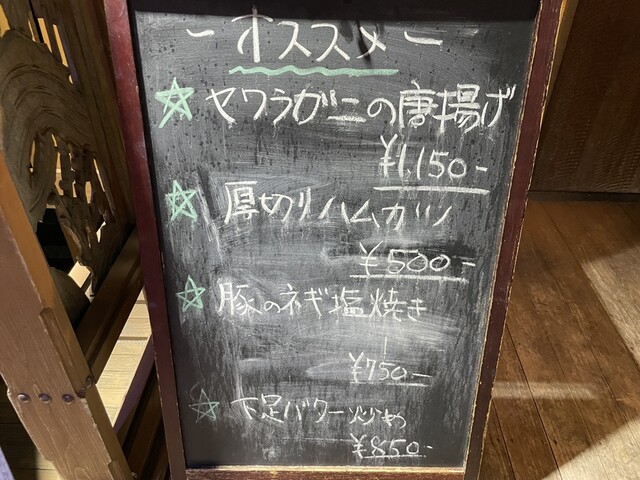 －オススメ－
☆ ヤワラガニの唐揚げ
¥1,150-
☆ 厚切りハムカツ
¥500-
☆ 豚のネギ塩焼き
¥750-
☆ 下足バター炒め
¥850-